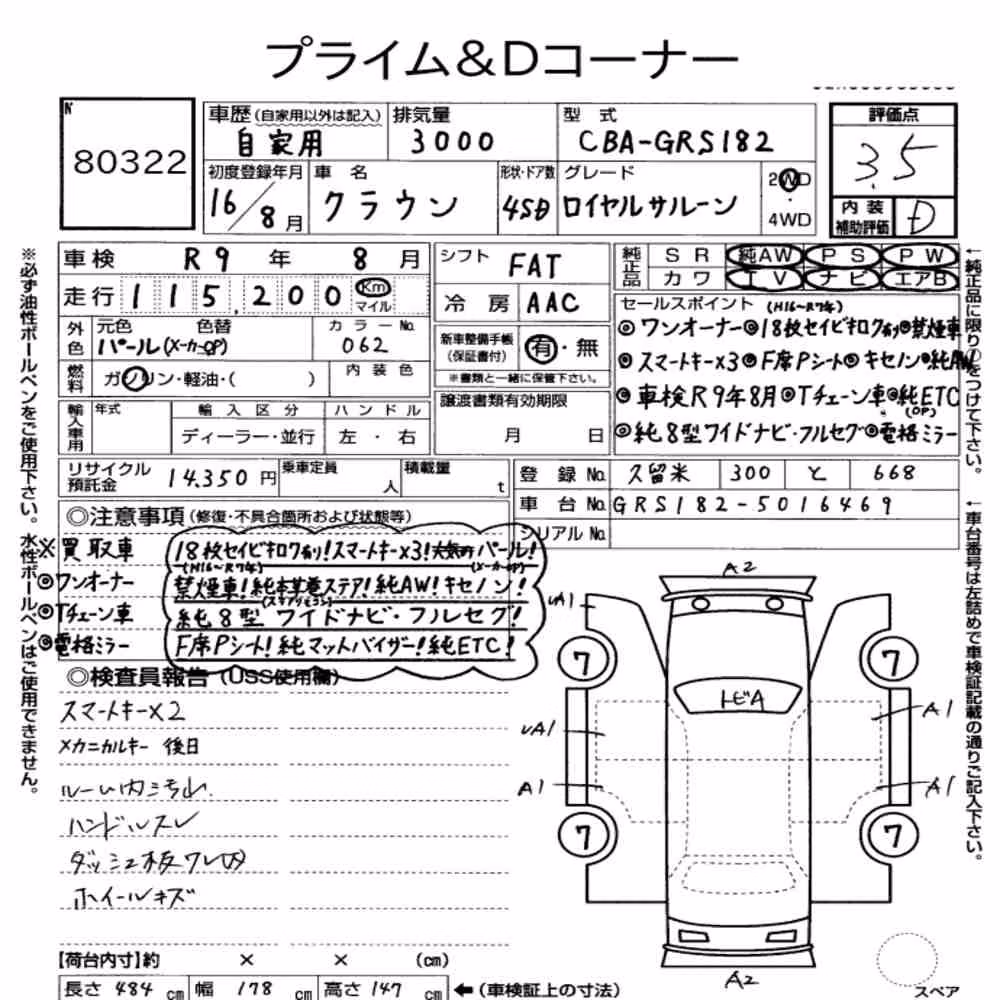 プライム&Dコーナー
No
80322
車歴(自家用以外は記入)
自家用
排気量
3000
型 式
CBA-GRS182
評価点
3.5
初度登録年月
16/8月
車 名
クラウン
形状・ドア数
4SD
グレード
ロイヤルサルーン
2WD
・
4WD
内 装
補助評価
D
※必ず油性ボールペンをご使用下さい。水性ボールペンはご使用できません。
車検 R9 年 8 月
走行 115,200 Km
マイル
シフト
FAT
冷 房 AAC
純正品
SR 純AW PS PW
カワ TV ナビ エアB
外色
元色 色替
パール(メーカーOP)
カラーNo.
062
新車整備手帳
(保証書付)
有・無
※書類と一緒に保管下さい。
燃料
ガソリン・軽油・( )
内装色
セールスポイント (H16~R7年)
◎ワンオーナー◎18枚セイビキロク有り◎禁煙車
◎スマートキー×3◎F席Pシート◎キセノン◎純AW
◎車検R9年8月◎Tチェーン車◎純ETC
(OP)
◎純8型ワイドナビ・フルセグ◎電格ミラー
輸入車用
年式
輸入区分
ハンドル
ディーラー・並行
左・右
譲渡書類有効期限
月 日
←純正品に限り○をつけて下さい。
リサイクル
預託金
14.350円
乗車定員
人
積載量
t
登録No. 久留米 300 と 668
車台No. GRS182-5016469
シリアルNo.
←車台番号は左詰めで車検証記載の通りご記入下さい。
◎注意事項(修復・不具合箇所および状態等)
※買取車
◎ワンオーナー
◎Tチェーン車
◎電格ミラー
18枚セイビキロク有り!スマートキー×3!大気のパール!
(H16~R7年) (メーカーOP)
禁煙車!純本革巻ステア!純AW!キセノン!
純8型ワイドナビ・フルセグ!
F席Pシート!純マットバイザー!純ETC!
◎検査員報告(USS使用欄)
スマートキー×2
メカニカルキー 後日
ルーム内ヨゴレ
ハンドルスレ
ダッシュ板ワレ凹
ホイールキズ
A2
UA1
7
7
トビA
UA1
A1
A1
A1
7
7
A2
スペア
【荷台内寸】約 × × (cm)
長さ 484 cm 幅 178 cm 高さ 147 cm ←(車検証上の寸法)